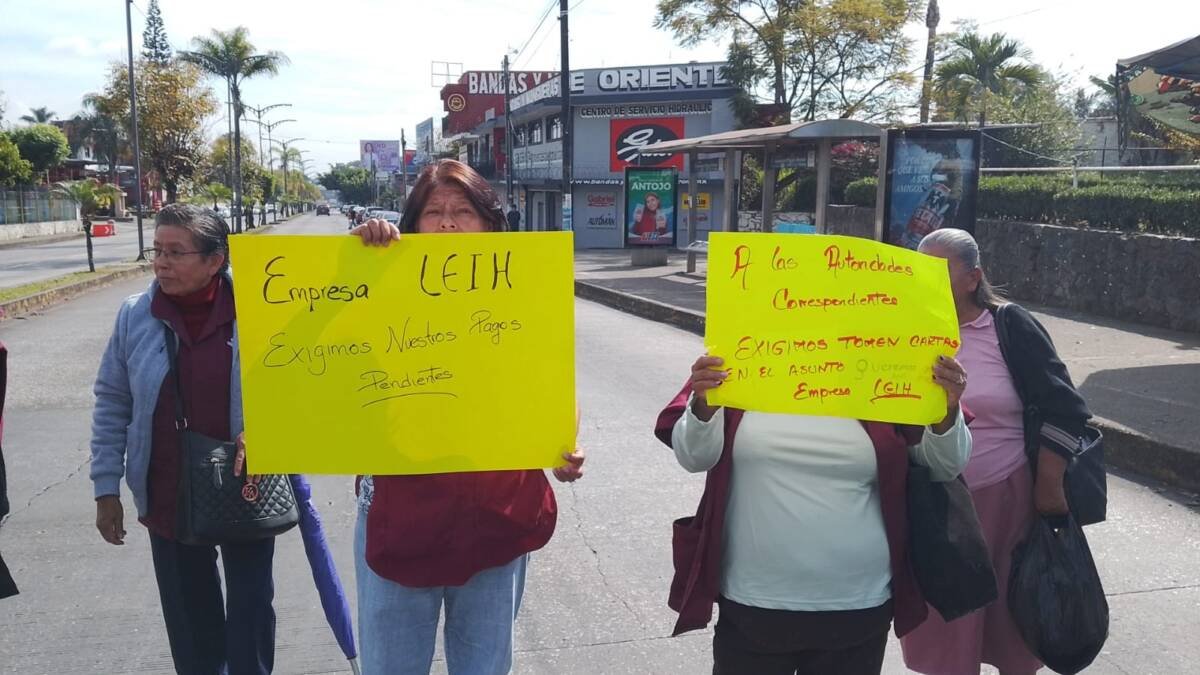 BANDAS Y
DE ORIENTE
CENTRO DE SERVICIO HIDRAULIC
ANTOJO
Gabriel
AUTOMAN
AMIGOS
Empresa LEIH
Exigimos Nuestros Pagos
Pendientes
A las Autoridades
Correspondientes
EXIGIMOS TOMEN CARTAS
EN EL ASUNTO
Empresa LEIH